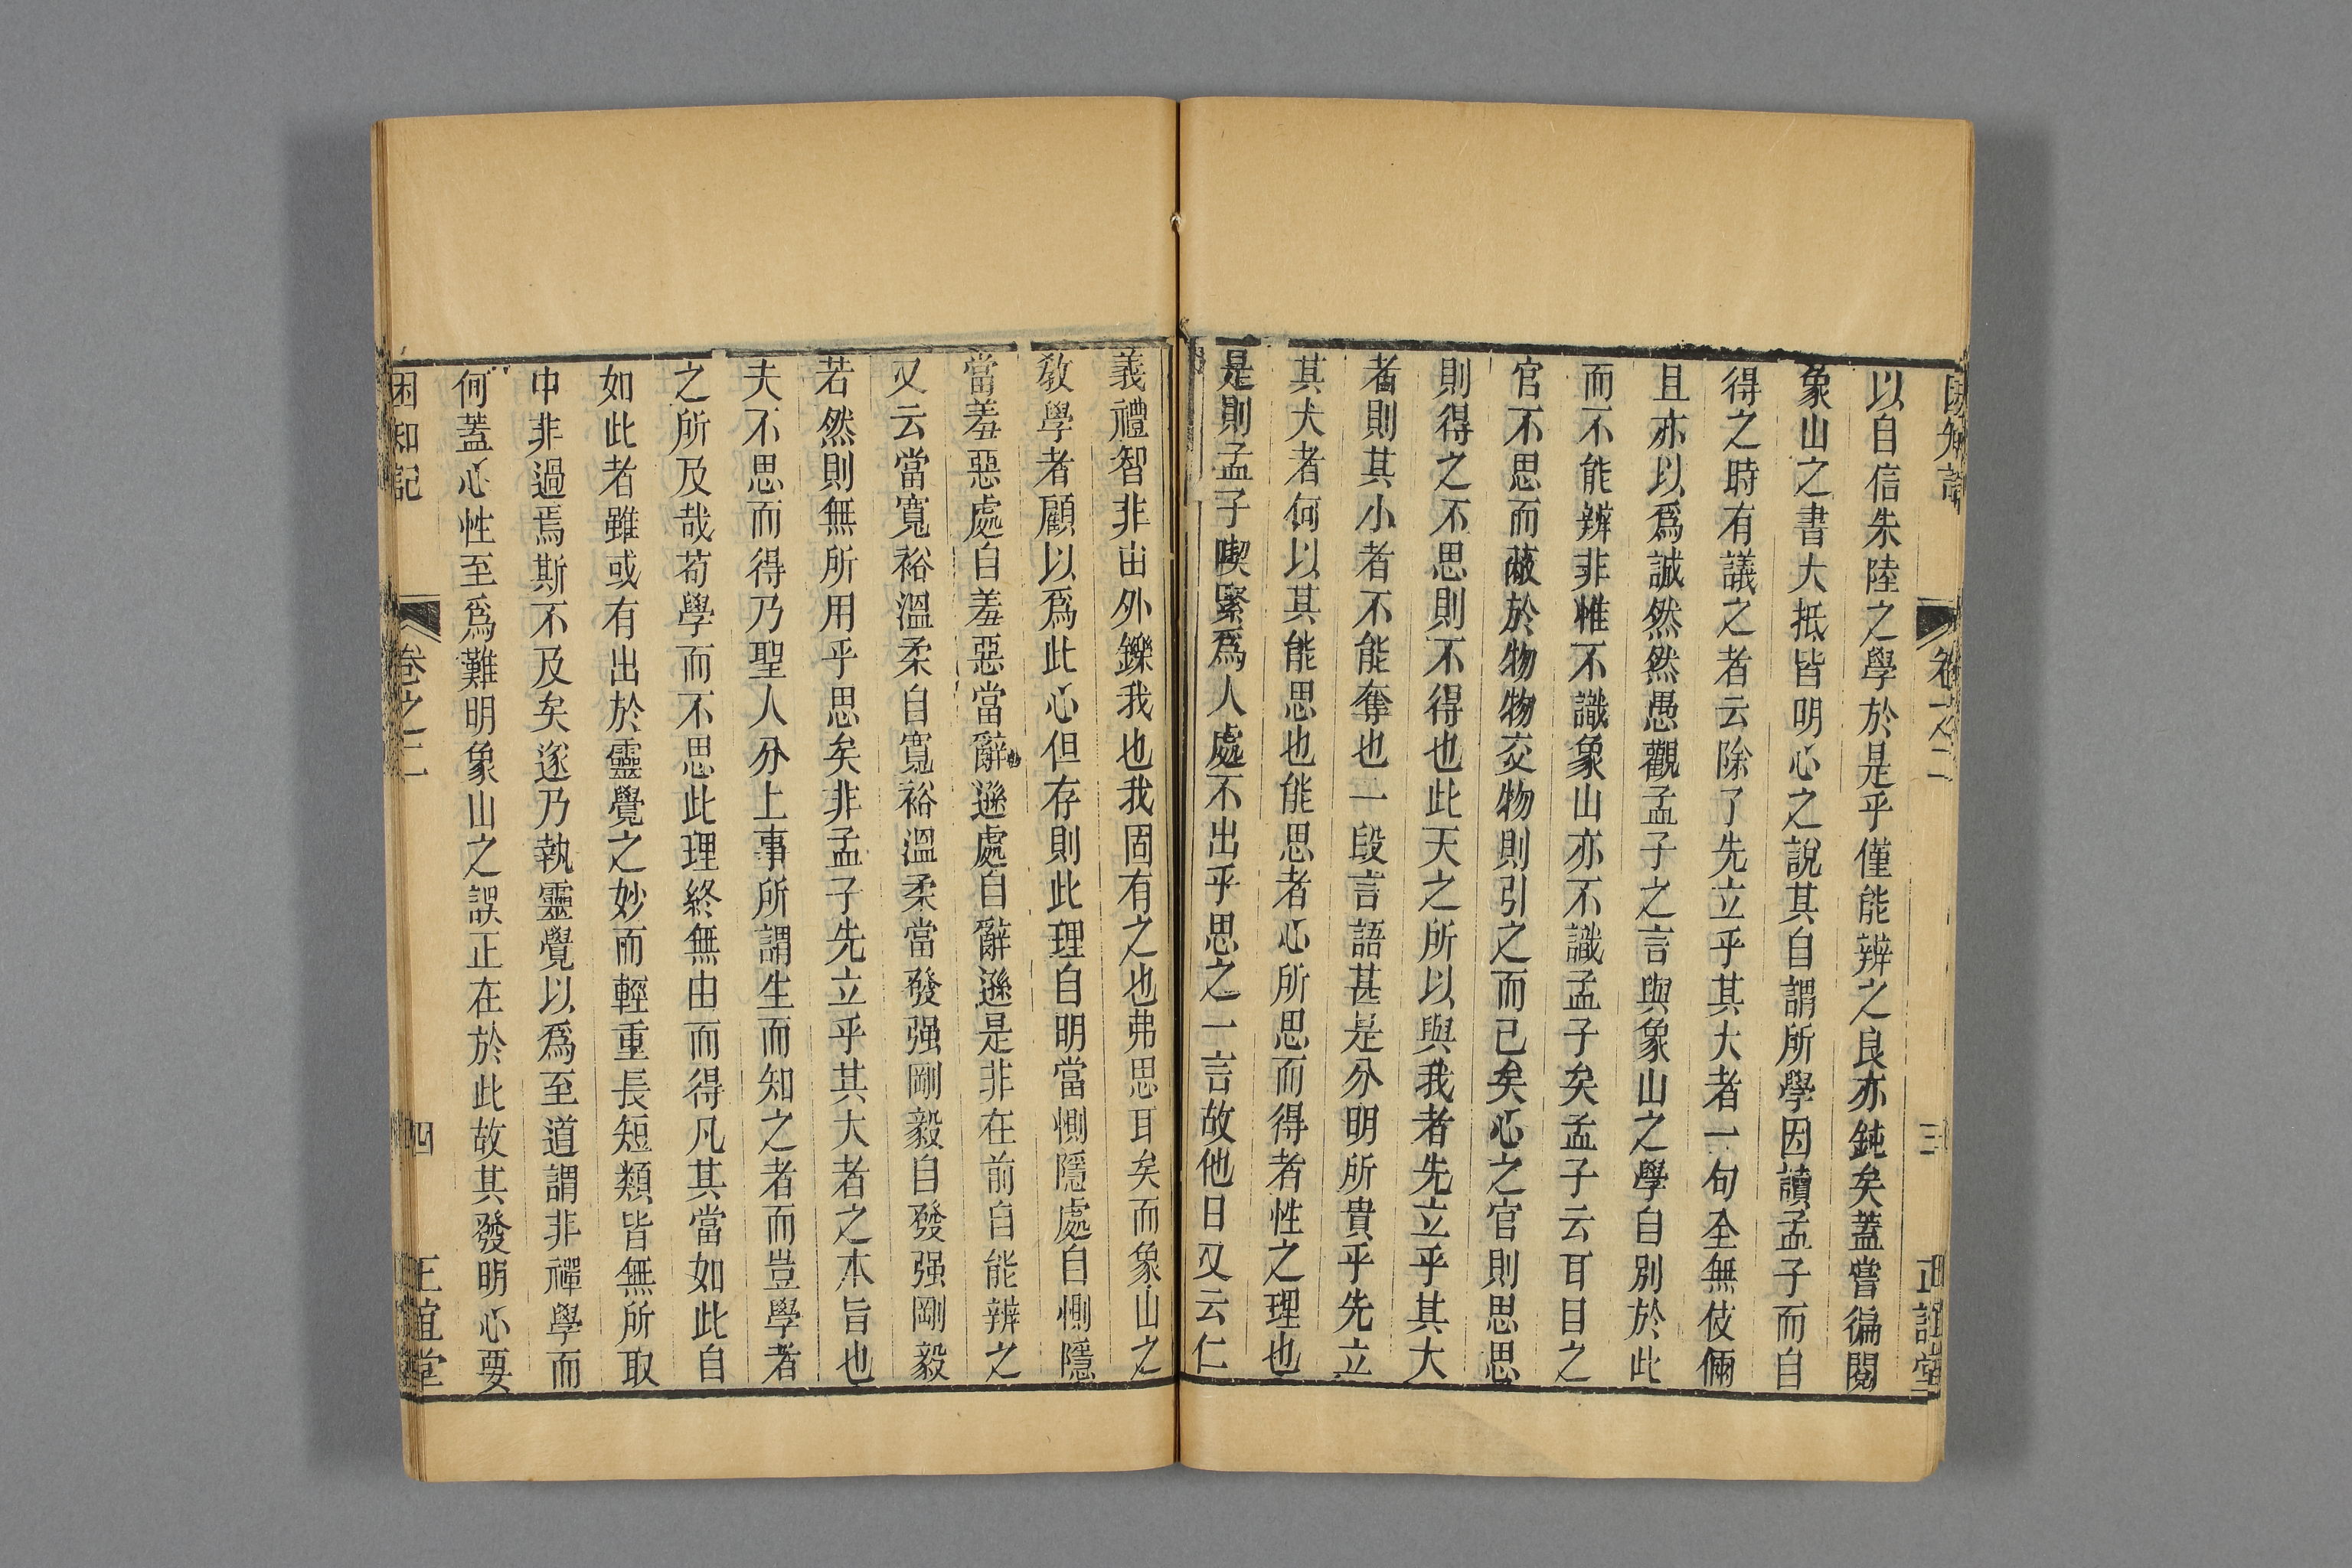 困知記 卷之二 三 正誼堂
以自信朱陸之學於是乎僅能辨之良亦鈍矣蓋嘗徧閱
象山之書大抵皆明心之說其自謂所學因讀孟子而自
得之時有議之者云除了先立乎其大者一句全無伎倆
且亦以爲誠然然愚觀孟子之言與象山之學自別於此
而不能辨非惟不識象山亦不識孟子矣孟子云耳目之
官不思而蔽於物物交物則引之而已矣心之官則思思
則得之不思則不得也此天之所以與我者先立乎其大
者則其小者不能奪也一段言語甚是分明所貴乎先立
其大者何以其能思也能思者心所思而得者性之理也
是則孟子喫緊爲人處不出乎思之一言故他日又云仁
義禮智非由外鑠我也我固有之也弗思耳矣而象山之
敎學者顧以爲此心但存則此理自明當惻隱處自惻隱
當羞惡處自羞惡當辭遜處自辭遜是非在前自能辨之
又云當寬裕溫柔自寬裕溫柔當發强剛毅自發强剛毅
若然則無所用乎思矣非孟子先立乎其大者之本旨也
夫不思而得乃聖人分上事所謂生而知之者而豈學者
之所及哉苟學而不思此理終無由而得凡其當如此自
如此者雖或有出於靈覺之妙而輕重長短類皆無所取
中非過焉斯不及矣遂乃執靈覺以爲至道謂非禪學而
何蓋心性至爲難明象山之誤正在於此故其發明心要
困知記 卷之二 四 正誼堂